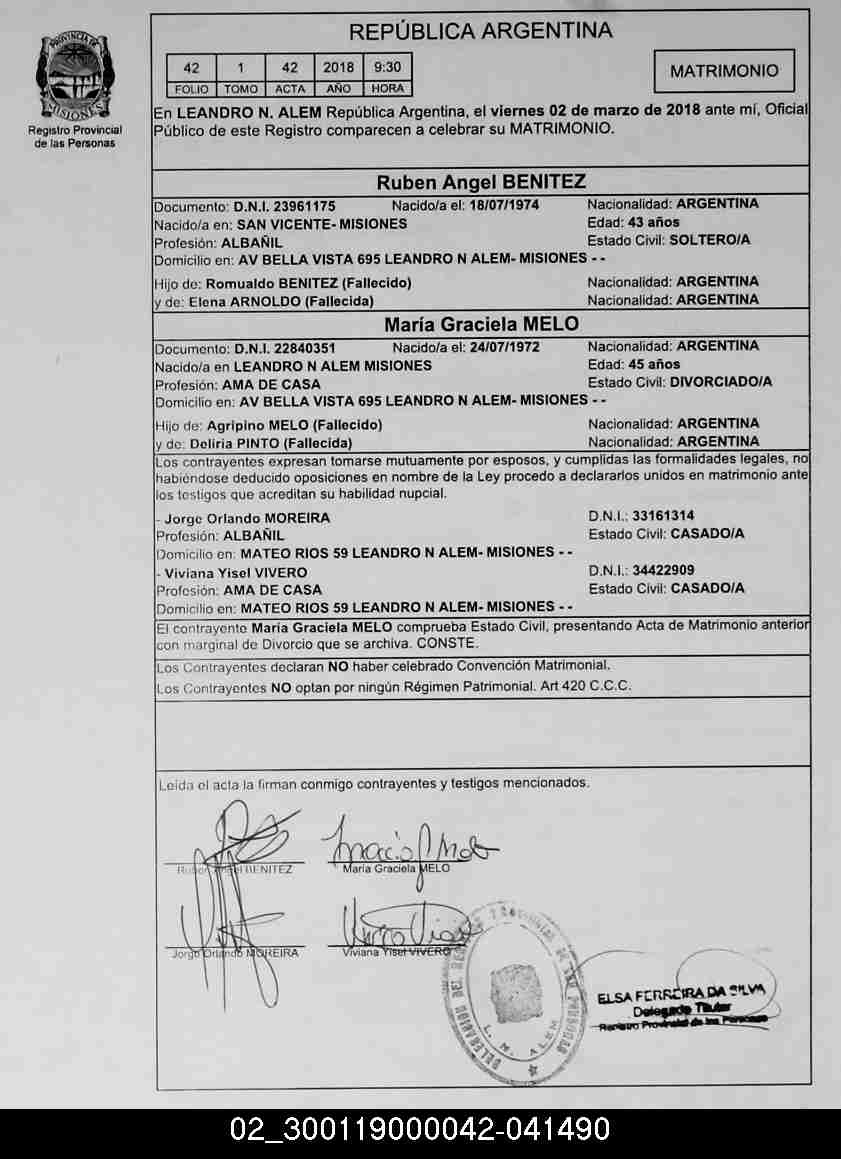 PROVINCIA DE
MISIONES
Registro Provincial
de las Personas
REPÚBLICA ARGENTINA
42 1 42 2018 9:30
FOLIO TOMO ACTA AÑO HORA
MATRIMONIO
En LEANDRO N. ALEM República Argentina, el viernes 02 de marzo de 2018 ante mí, Oficial
Público de este Registro comparecen a celebrar su MATRIMONIO.
Ruben Angel BENITEZ
Documento: D.N.I. 23961175 Nacido/a el: 18/07/1974 Nacionalidad: ARGENTINA
Nacido/a en: SAN VICENTE- MISIONES Edad: 43 años
Profesión: ALBAÑIL Estado Civil: SOLTERO/A
Domicilio en: AV BELLA VISTA 695 LEANDRO N ALEM- MISIONES - -
Hijo de: Romualdo BENITEZ (Fallecido) Nacionalidad: ARGENTINA
y de: Elena ARNOLDO (Fallecida) Nacionalidad: ARGENTINA
María Graciela MELO
Documento: D.N.I. 22840351 Nacido/a el: 24/07/1972 Nacionalidad: ARGENTINA
Nacido/a en LEANDRO N ALEM MISIONES Edad: 45 años
Profesión: AMA DE CASA Estado Civil: DIVORCIADO/A
Domicilio en: AV BELLA VISTA 695 LEANDRO N ALEM- MISIONES - -
Hijo de: Agripino MELO (Fallecido) Nacionalidad: ARGENTINA
y de: Deliria PINTO (Fallecida) Nacionalidad: ARGENTINA
Los contrayentes expresan tomarse mutuamente por esposos, y cumplidas las formalidades legales, no
habiéndose deducido oposiciones en nombre de la Ley procedo a declararlos unidos en matrimonio ante
los testigos que acreditan su habilidad nupcial.
- Jorge Orlando MOREIRA D.N.I.: 33161314
Profesión: ALBAÑIL Estado Civil: CASADO/A
Domicilio en: MATEO RIOS 59 LEANDRO N ALEM- MISIONES - -
- Viviana Yisel VIVERO D.N.I.: 34422909
Profesión: AMA DE CASA Estado Civil: CASADO/A
Domicilio en: MATEO RIOS 59 LEANDRO N ALEM- MISIONES - -
El contrayente María Graciela MELO comprueba Estado Civil, presentando Acta de Matrimonio anterior
con marginal de Divorcio que se archiva. CONSTE.
Los Contrayentes declaran NO haber celebrado Convención Matrimonial.
Los Contrayentes NO optan por ningún Régimen Patrimonial. Art 420 C.C.C.
Leída el acta la firman conmigo contrayentes y testigos mencionados.
Ruben Angel BENITEZ María Graciela MELO
Jorge Orlando MOREIRA Viviana Yisel VIVERO
L. N. ALEM
ELSA FERREIRA DA SILVA
Delegado Titular
Registro Provincial de las Personas
02_300119000042-041490